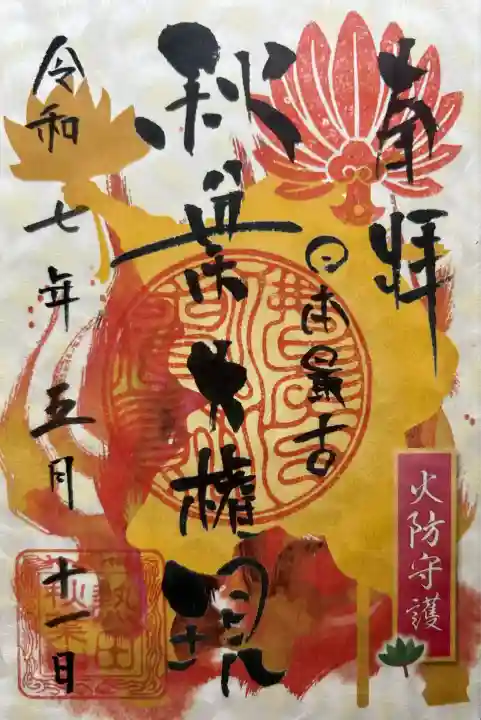 奉拝
日本最古
秋葉大権現
令和七年五月十一日
火防守護